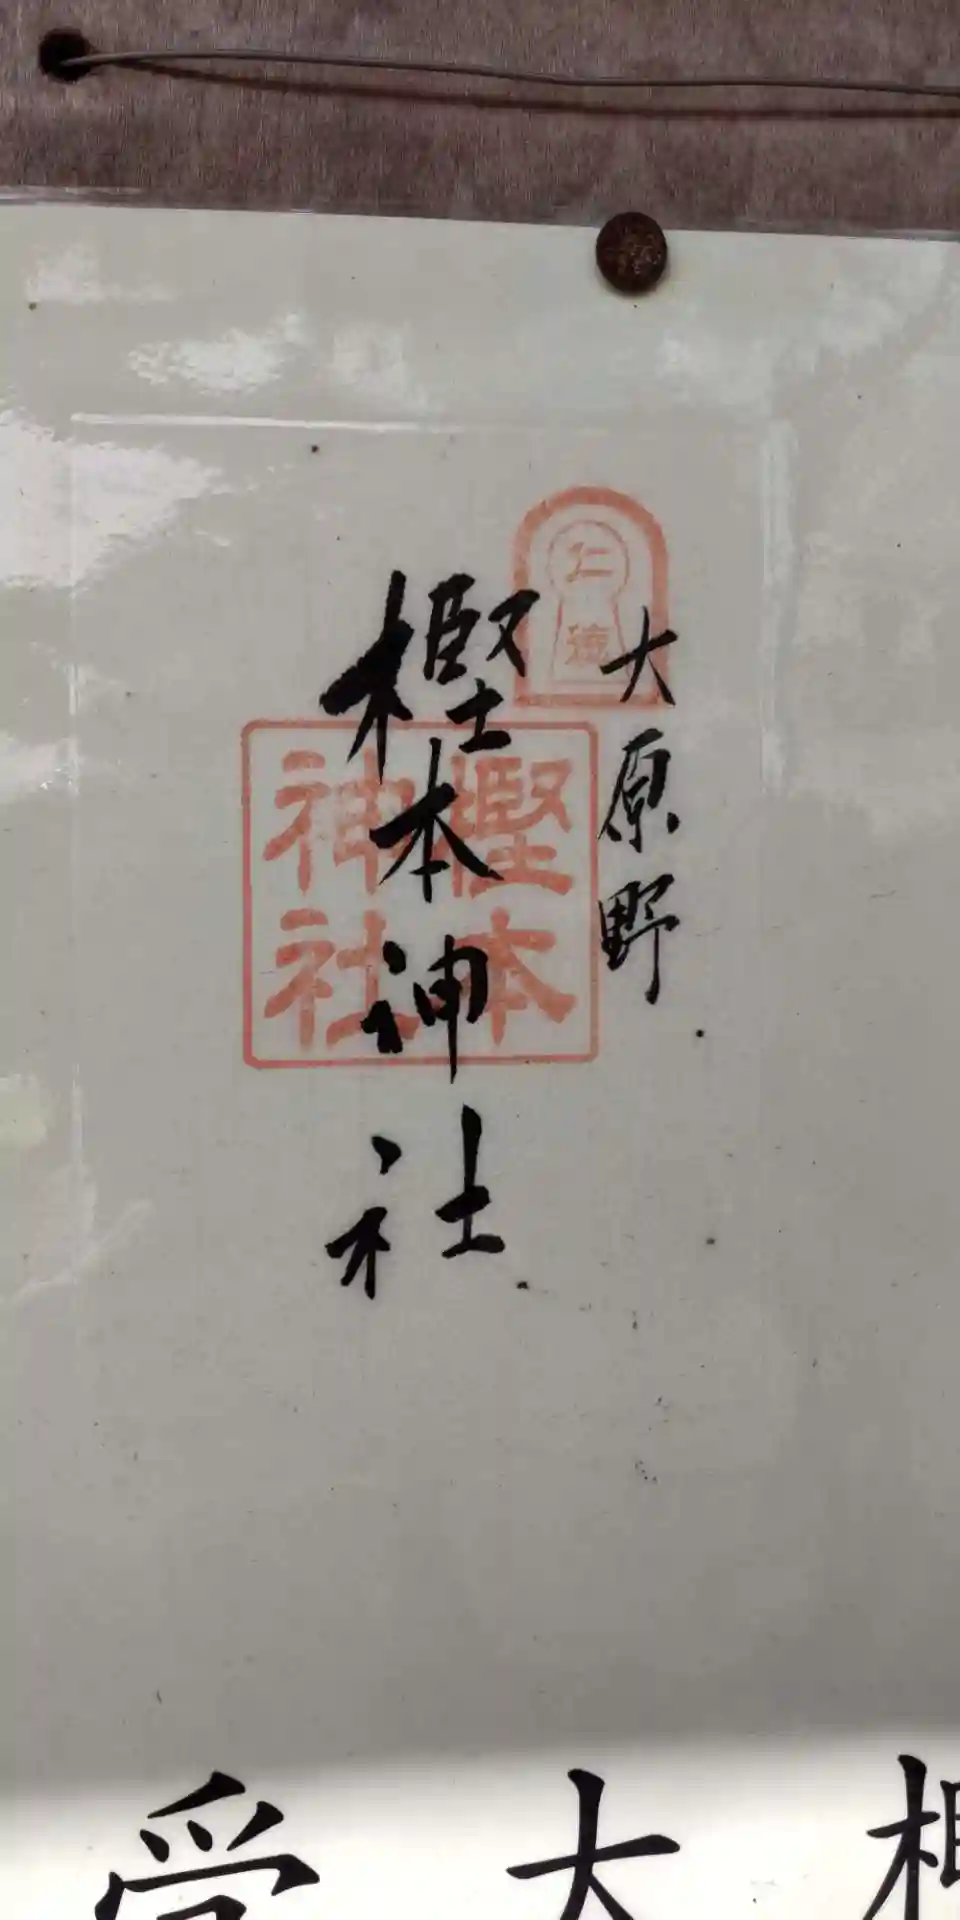 大原野
樫本神社
仁徳
樫本
神社
大
受